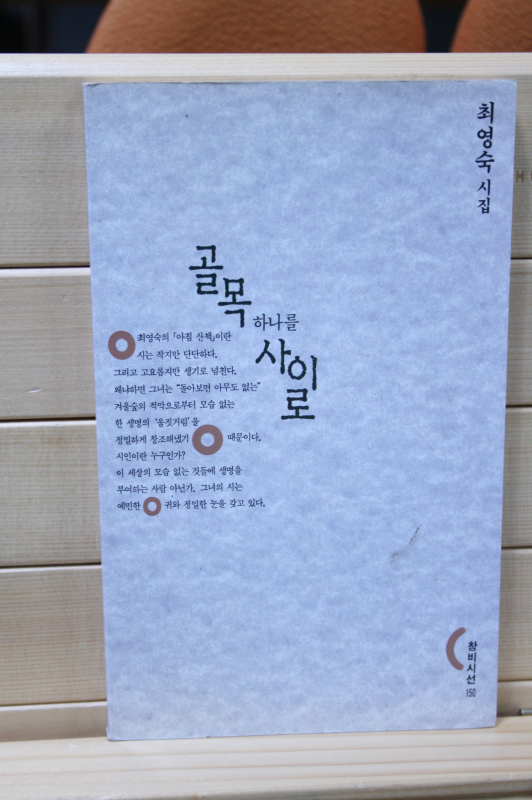 최영숙 시집
골목
하나를
사이로
최영숙의 「아침 산책」이란
시는 작지만 단단하다.
그리고 고요롭지만 생기로 넘친다.
왜냐하면 그녀는 "돌아보면 아무도 없는"
겨울숲의 적막으로부터 모습 없는
한 생명의 '움직거림'을
정밀하게 창조해냈기 때문이다.
시인이란 누구인가?
이 세상의 모습 없는 것들에 생명을
부여하는 사람 아닌가. 그녀의 시는
예민한 귀와 정밀한 눈을 갖고 있다.
창비시선
150